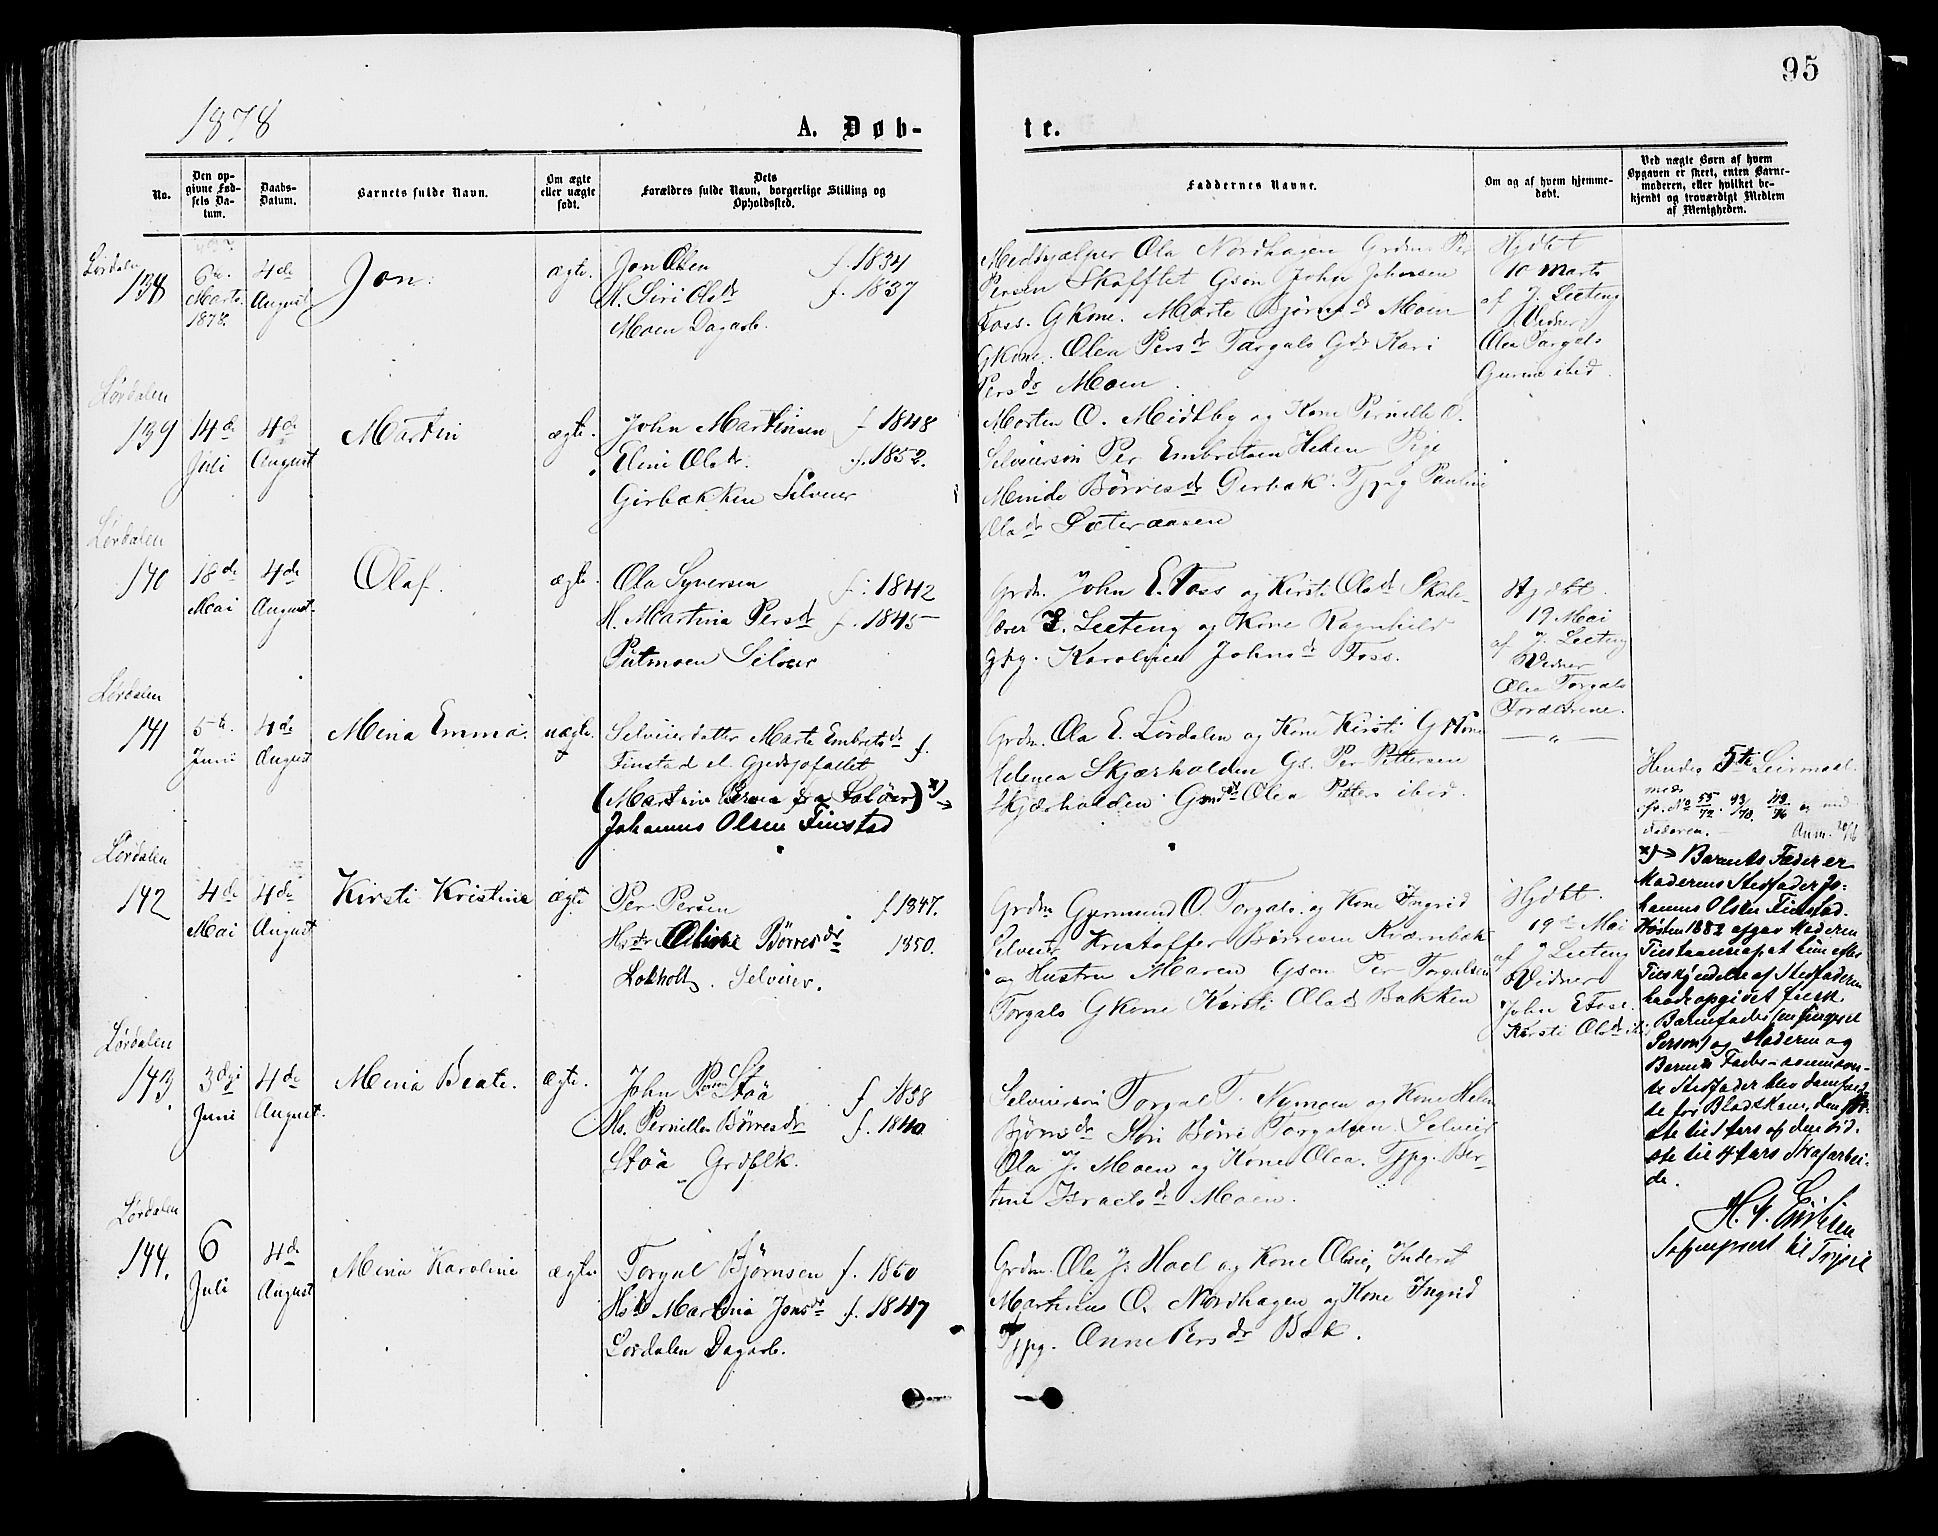 95
1878
A. Døb-
te.
No.
Den op-
givne Fød-
sels Da-
tum.
Daabs-
Datum.
Barnets fulde Navn.
Om ægte
eller uægte
født.
Dets
Forældres fulde Navn, borgerlige Stilling og
Opholdssted.
Faddernes Navne.
Om og af hvem hjemme-
døbt.
Ved uægte Børn af hvem
Opgaven er skeet, enten Barne-
moderen, eller hvilket be-
kjendt og troværdigt Medlem
af Menigheden.
Lørdalen
138
6te
Marts
1878.
4de
August
Jon.
ægte.
Jon Olsen f. 1834
H. Siri Olsdr f. 1837
Moen Dagarb.
Medhjælper Ola Nordhagen Grdm. Per
Persen Skafftet Gsøn John Johnsen
Foss. GKone. Marte Bjørnsdr Moen
GKone. Olea Persdr Torgals Gdr Kari
Persdr Moen.
Hjdbt
10 Marts
af J. Leeteng
Vidner
Olea Torgals
Lørdalen
139
14de
Juli
4de
August
Martin
ægte.
John Martinsen f 1848
Eline Olsdr. f. 1852.
Girbækken Selveier
Morten O. Midtby og Kone Pernille O.
Selveiersøn Per Embretsen Heden Pige
Minda Børresdr Gerbæk. Tjpig Pauline
Olsdr Sæteraasen
Lørdalen
140
18de
Mai
4de
August.
Olaf.
ægte.
Ola Syversen f. 1842
H. Martina Persdr f. 1845
Putmoen Selveier
Grdm. John E. Foss og Kirsti Olsdr Skole-
lærer J. Leeteng og Kone Ragnhild
Gpg. Karoline Johnsdr Foss.
Hjdbt
19 Mai
af J. Leeteng
Vidner
Olea Torgals
Forældrene.
Lørdalen
141
5te
Juni
4de
August
Mina Emma.
uægte.
Selveierdatter Marte Embretsdr f.
Finstad el. Gjedsjøfallet
(Martin Persen fra Soløer) x) →
Johannes Olsen Finstad
Grdm. Ola E. Lørdalen og Kone Kirsti GKone
Helena Skjærholden Gs. Per Pettersen
Skjærholden Gmdtr Olea Petters ibid.
— „ —
Hendes 5te Leiermaal.
cfr. No 55/72. 93/70. 119/76 og
x) → Barnets Fader er
Moderens Stedfader Jo-
hannes Olsen Finstad.
Høsten 1882 afgav Moderen
Tilstaaelse at hun efter
Tilskyndelse af Stedfaderen
havde opgivet falsk
Barnefader (en fingeret
Person) og Moderen og
Barnets Fader
Stedfader blev dømfæld-
te for Blodskam, den før-
ste til 1 Aars og den sid-
ste til 4 Aars Strafarbei-
de.
Sognepræst til Trysil
Lørdalen
142
4de
Mai
4de
August
Kirsti Kristine
ægte
Per Persen f. 1847.
Hsdr Olivie Børresdr 1850.
Lokholdt. Selveier.
Grdm Gjermund O. Torgals og Kone Ingrid
Selveier Kristoffer Børresen Kværnbæk
og Hustru Maren Gsøn Per Torgalsen
Torgals GKone Kirsti Olsdr Bakken
Hjdbt.
19de Mai
af J Leeteng
Vidner
John E Foss
Kirsti Olsdr ibid
Lørdalen
143.
3die
Juni
4de
August.
Mina Beate.
ægte.
John Persen Støa f 1838
Hs. Pernille Børresdr f. 1840
Støa Grdflk.
Selveiersøn Torgal T. Nymoen og Kone Helen
Bjørnsdr Støri Børre Torgalsen. Selveier
Ola J. Moen og Kone Olea. Tjpg. Ber-
tine Israelsdr Moen.
Lørdalen
144.
6
Juli
4de
August
Mina Karoline
ægte
Torgal Bjørnsen f. 1850
Hst Martina Jonsdr f. 1847
Lørdalen Dagarb.
Grdm. Ole J. Hoel og Kone Olivie, Inderst
Martinus O. Nordhagen og Kone Ingrid
Tjpg. Anne Persdr Bæk.